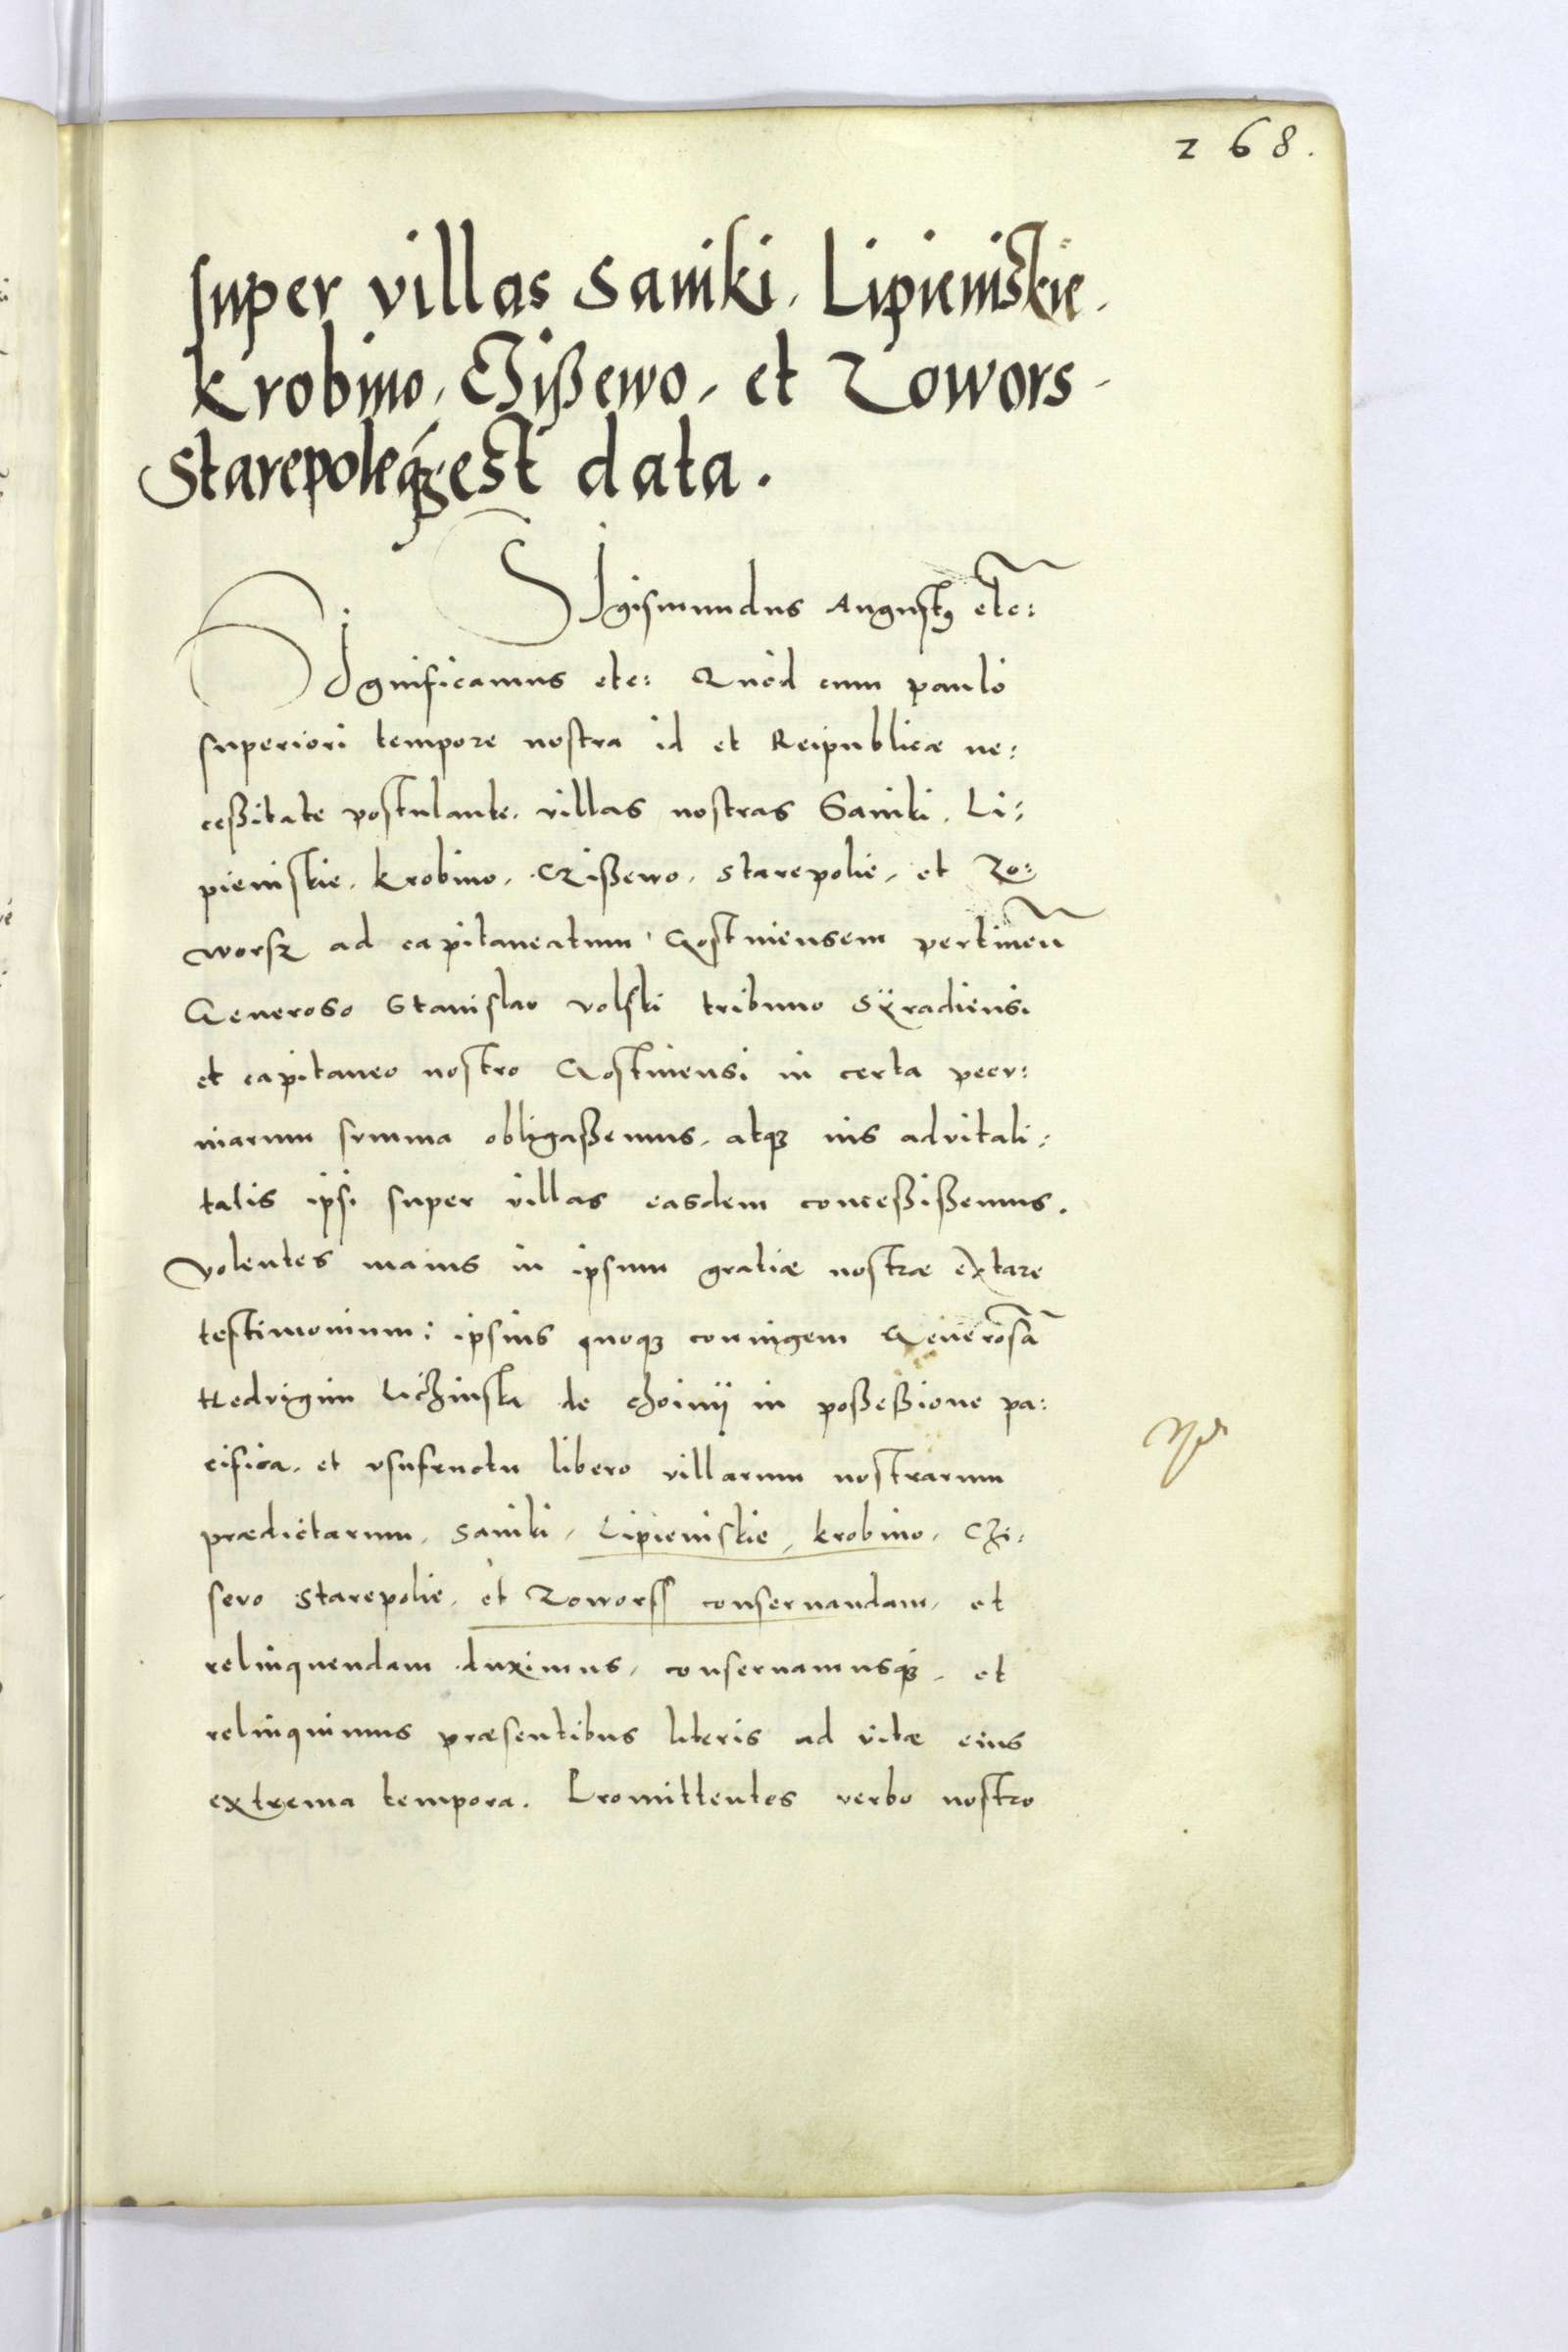 268.
super villas Saniki, Lipieniskie,
Krobino, Czißewo, et Zowors,
Starepoleq̃ est data.
SIgismundus Augustꝯ etc:
SIgnificamus etc: Quòd cum paulò
superiori tempore nostra id et Reipublicæ ne:
ceßitate postulante, villas nostras Saniki, Li:
pieniskie, Krobino, Czißewo, Starepolie, et Zo:
worsz ad capitaneatum Gostinensem pertinen̄
Generoso Stanislao Volski tribuno Syradiensi
et capitaneo nostro Gostinensi in certa pecu:
niarum summa obligaßemus, atqꝫ ius advitali:
talis ipsi super villas easdem conceßißemus.
Volentes maius in ipsum gratiæ nostræ extare
testimonium: ipsius quoqꝫ coniugem Generosā
Hedvigim Liczinska de Choiny in poßeßione pa:
cifica, et vsufructu libero villarum nostrarum
prædictarum, Saniki, Lipieniskie, Krobino, Czi:
sevo Starepolie, et Zoworss conservandam, et
relinquendam duximus, conservamusqꝫ, et
relinquimus præsentibus literis ad vitæ eius
extrema tempora. Promittentes verbo nostro